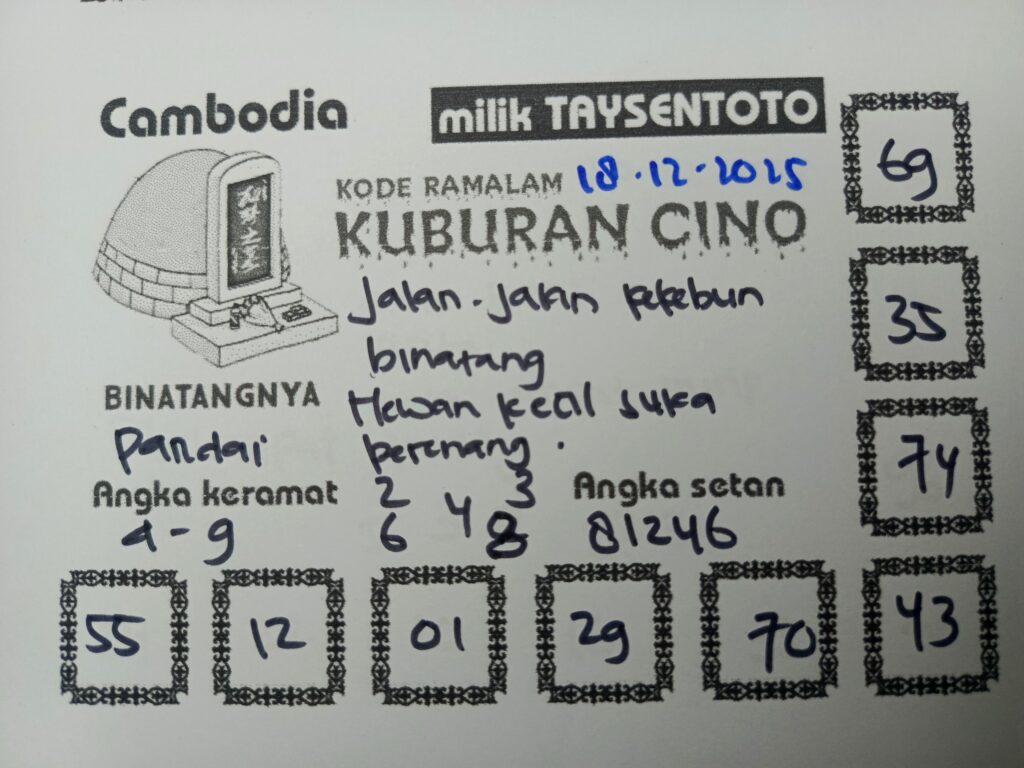 Cambodia
milik TAYSENTOTO
KODE RAMALAM 18.12.2025
KUBURAN CINO
Jalan-jalan kekebun
binatang
Hewan kecil suka
berenang.
BINATANGNYA
Pandai
Angka keramat
4-9
2 4 3
6 8
Angka setan
81246
69
35
74
55 12 01 29 70 43